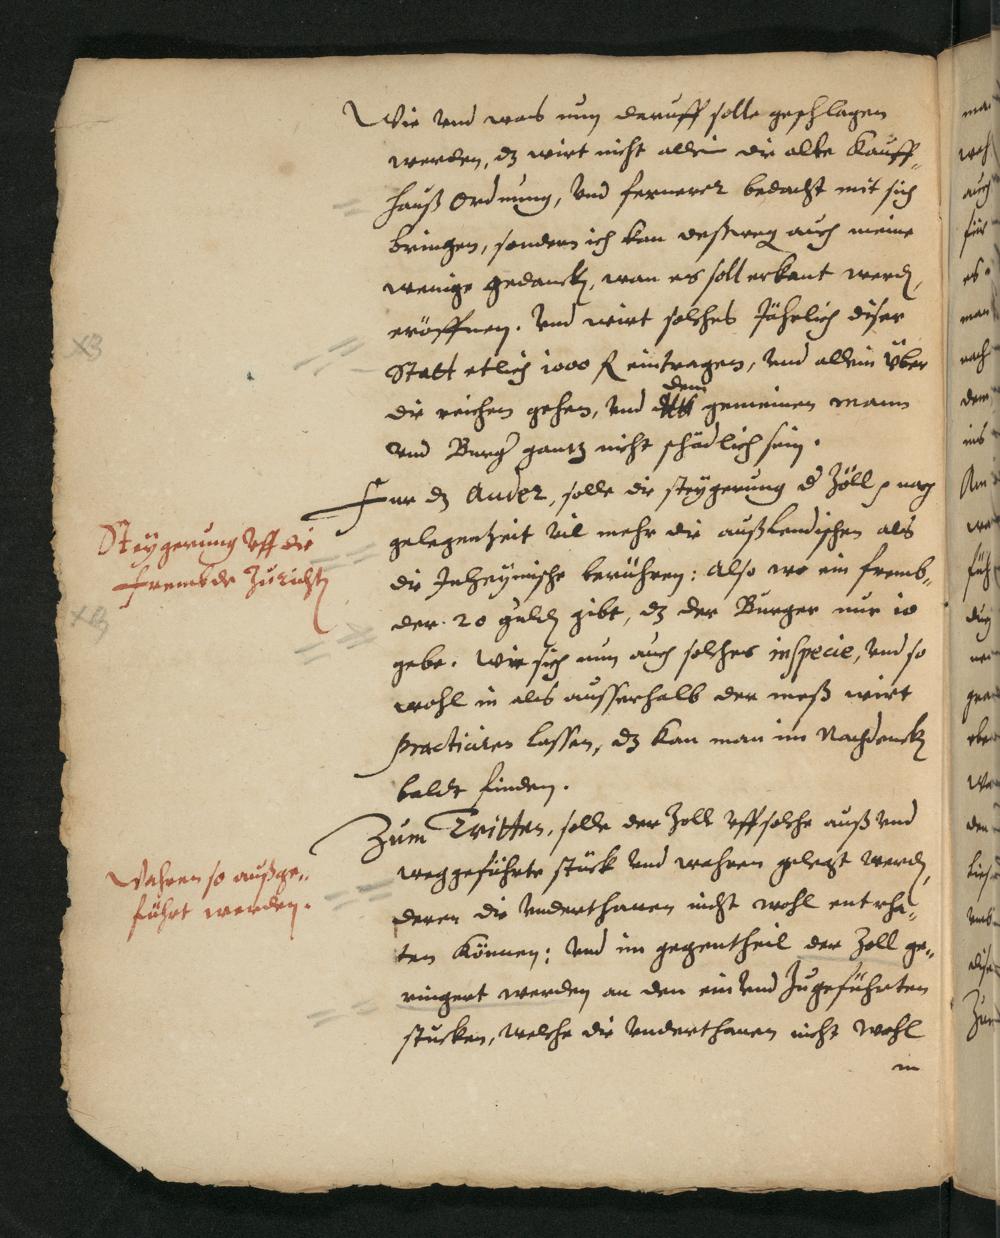 Wie vnd was nun daruff solte geschlagen
werden, dz wirt nicht allein die alte Kauff„
hauß Ordnung, vnd fernerer bedacht mit sich
bringen, sondern ich kan deßweg auch meine
wenige gedanckh, wan es soll erkant werdn,
eröffnen. Vnd wirt solches Jährlich diser
Statt etlich 1000 R eintragen, vnd allein über
die reichen gehen, vnd dem gemeinen mann
vnd Burgr gantz nicht schädlich sein.
Fur dz Ander, solle die steygerung d Zöll p nach
gelegenheit vil mehr die außlendischen als
die Inheymische berühren: Also wo ein fremb„
der 20 guldn gibt, dz der Burger nur 10
gebe. Wie sich nun auch solches in specie, vnd so
wohl in als ausserhalb der meß wirt
practiciren lassen, dz kan man im Nachdenckn
baldt finden.
Zum Tritten, solle der Zoll vff solche auß vnd
weggeführte stück vnd wahren gelegt werdn,
deren die vnderthanen nicht wohl entrha„
ten können: vnd im gegentheil der Zoll ge„
ringert werden an den ein vnd zugeführten
stucken, welche die vnderthanen nicht wohl
in
Steygerung vff die
frembde zu richtn
Wahren so außge„
führt werden.